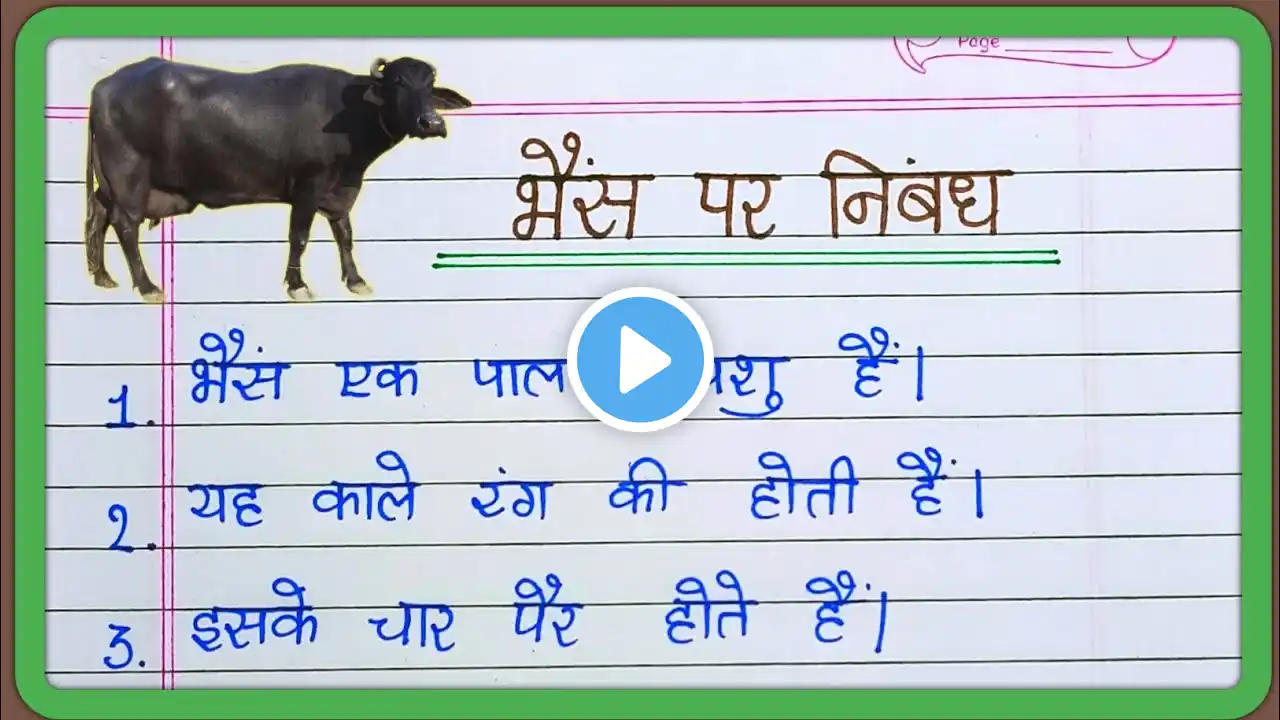 Page
भैंस पर निबंध
1. भैंस एक पाल शु हैं।
2. यह काले रंग की होती हैं।
3. इसके चार पैर होते हैं।